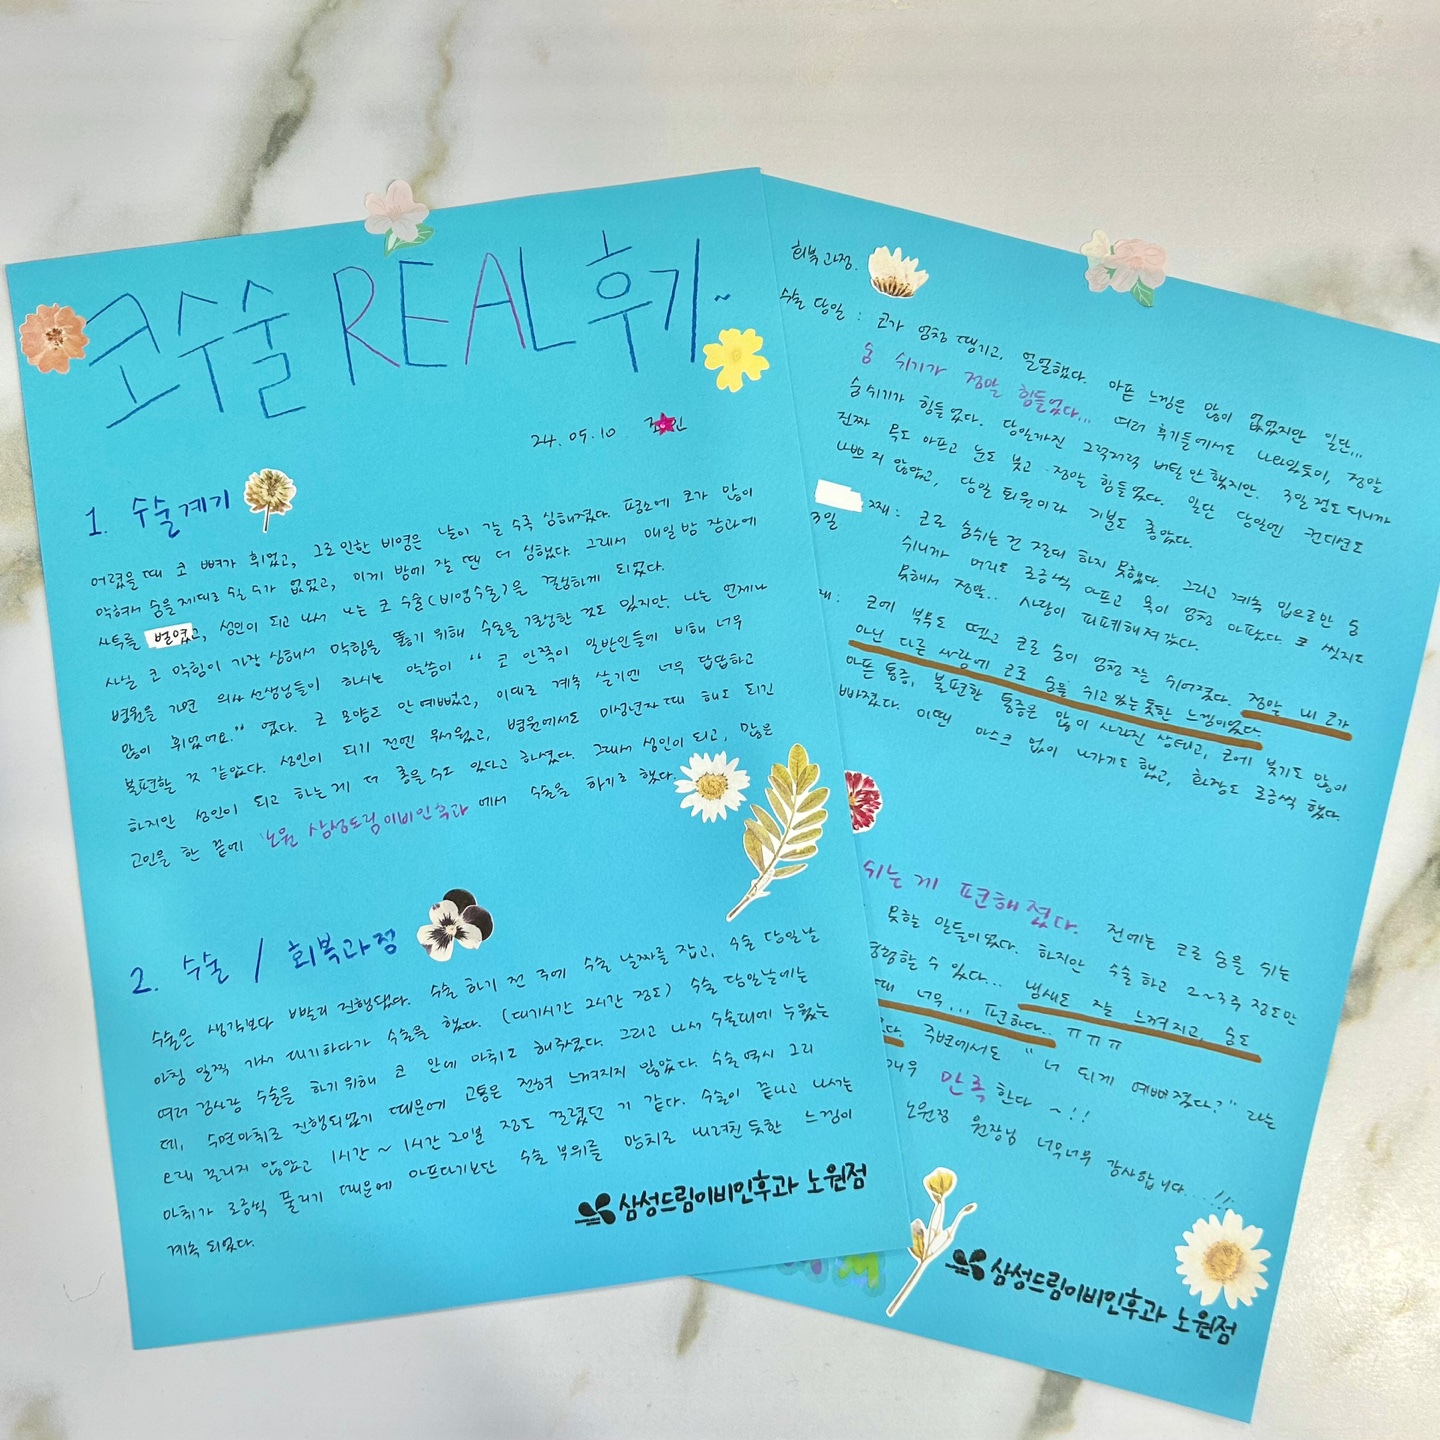 코수술 REAL 후기~
24.05.10
1. 수술계기
어렸을 때 코 뼈가 휘었고, 그로인한 비염은 날이 갈 수록 심해졌다. 평소에 코가 많이
막혀서 숨을 제대로 쉴 수가 없었고, 이게 밤에 잘 땐 더 심했다. 그래서 매일 밤 잠과에
사투를 벌였고, 성인이 되고 나서 나는 코 수술(비염수술)을 결심하게 되었다.
사실 코 막힘이 가장 심해서 막힘을 뚫기 위해 수술을 결정한 것도 있지만, 나는 언제나
병원을 가면 의사 선생님들이 하시는 말씀이 “코 안쪽이 일반인들에 비해 너무
많이 휘었어요.” 였다. 코 모양도 안 예뻤고, 이대로 계속 살기엔 너무 답답하고
불편할 것 같았다. 성인이 되기 전엔 무서웠고, 병원에서도 미성년자 때 해도 되긴
하지만 성인이 되고 하는게 더 좋을 수도 있다고 하셨다. 그래서 성인이 되고, 많은
고민을 한 끝에 '노원 삼성드림이비인후과'에서 수술을 하기로 했다.
2. 수술 / 회복과정
수술은 생각보다 빨리 진행됐다. 수술 하기 전 주에 수술 날짜를 잡고, 수술 당일날
아침 일찍 가서 대기하다가 수술을 했다. (대기시간 2시간 정도) 수술 당일날에는
여러 검사랑 수술을 하기 위해 코 안에 마취도 해주셨다. 그리고 나서 수술대에 누웠는
데, 수면마취로 진행되었기 때문에 고통은 전혀 느껴지지 않았다. 수술 역시 그리
오래 걸리지 않았고 1시간 ~ 1시간 20분 정도 걸렸던 거 같다. 수술이 끝나고 나서는
마취가 조금씩 풀리기 때문에 아프다기보단 수술 부위를 망치로 내려친 듯한 느낌이
계속 되었다.
삼성드림이비인후과 노원점
회복과정.
수술 당일 : 코가 엄청 땡기고, 얼얼했다. 아픈 느낌은 많이 없었지만 일단...
숨 쉬기가 정말 힘들었다... 여러 후기들에서도 나와있듯이, 정말
숨쉬기가 힘들었다. 당일까진 그럭저럭 버틸만 했지만. 3일 정도 되니까
진짜 목도 아프고 눈도 붓고 정말 힘들었다. 일단 당일엔 컨디션도
나쁘지 않았고, 당일 퇴원이라 기분도 좋았다.
3일째 : 코로 숨쉬는 건 절대 하지 못했다. 그리고 계속 입으로만 숨
쉬니까 머리도 조금씩 아프고 목이 엄청 아팠다. 코 씻지도
못해서 정말.. 사람이 피폐해져 갔다.
째 : 코에 부목도 떴고 코로 숨이 엄청 잘 쉬어졌다. 정말 내 코가
아닌 다른 사람에 코로 숨을 쉬고 있는 듯한 느낌이었다.
아픈 통증, 불편한 통증은 많이 사라진 상태고, 코에 붓기도 많이
빠졌다. 이땐 마스크 없이 나가기도 했고, 화장도 조금씩 했다.
쉬는 게 편해졌다. 전에는 코로 숨을 쉬는
못하는 일들이었다. 하지만 수술 하고 2~3주 정도만
경험할 수 있다... 냄새도 잘 느껴지고, 숨도
때 너무... 편하다.. ㅠㅠㅠ
주변에서도 “너 되게 예뻐졌다?” 라는
매우 만족한다 ~!!
노원점 원장님 너무너무 감사합니다...!!
삼성드림이비인후과 노원점